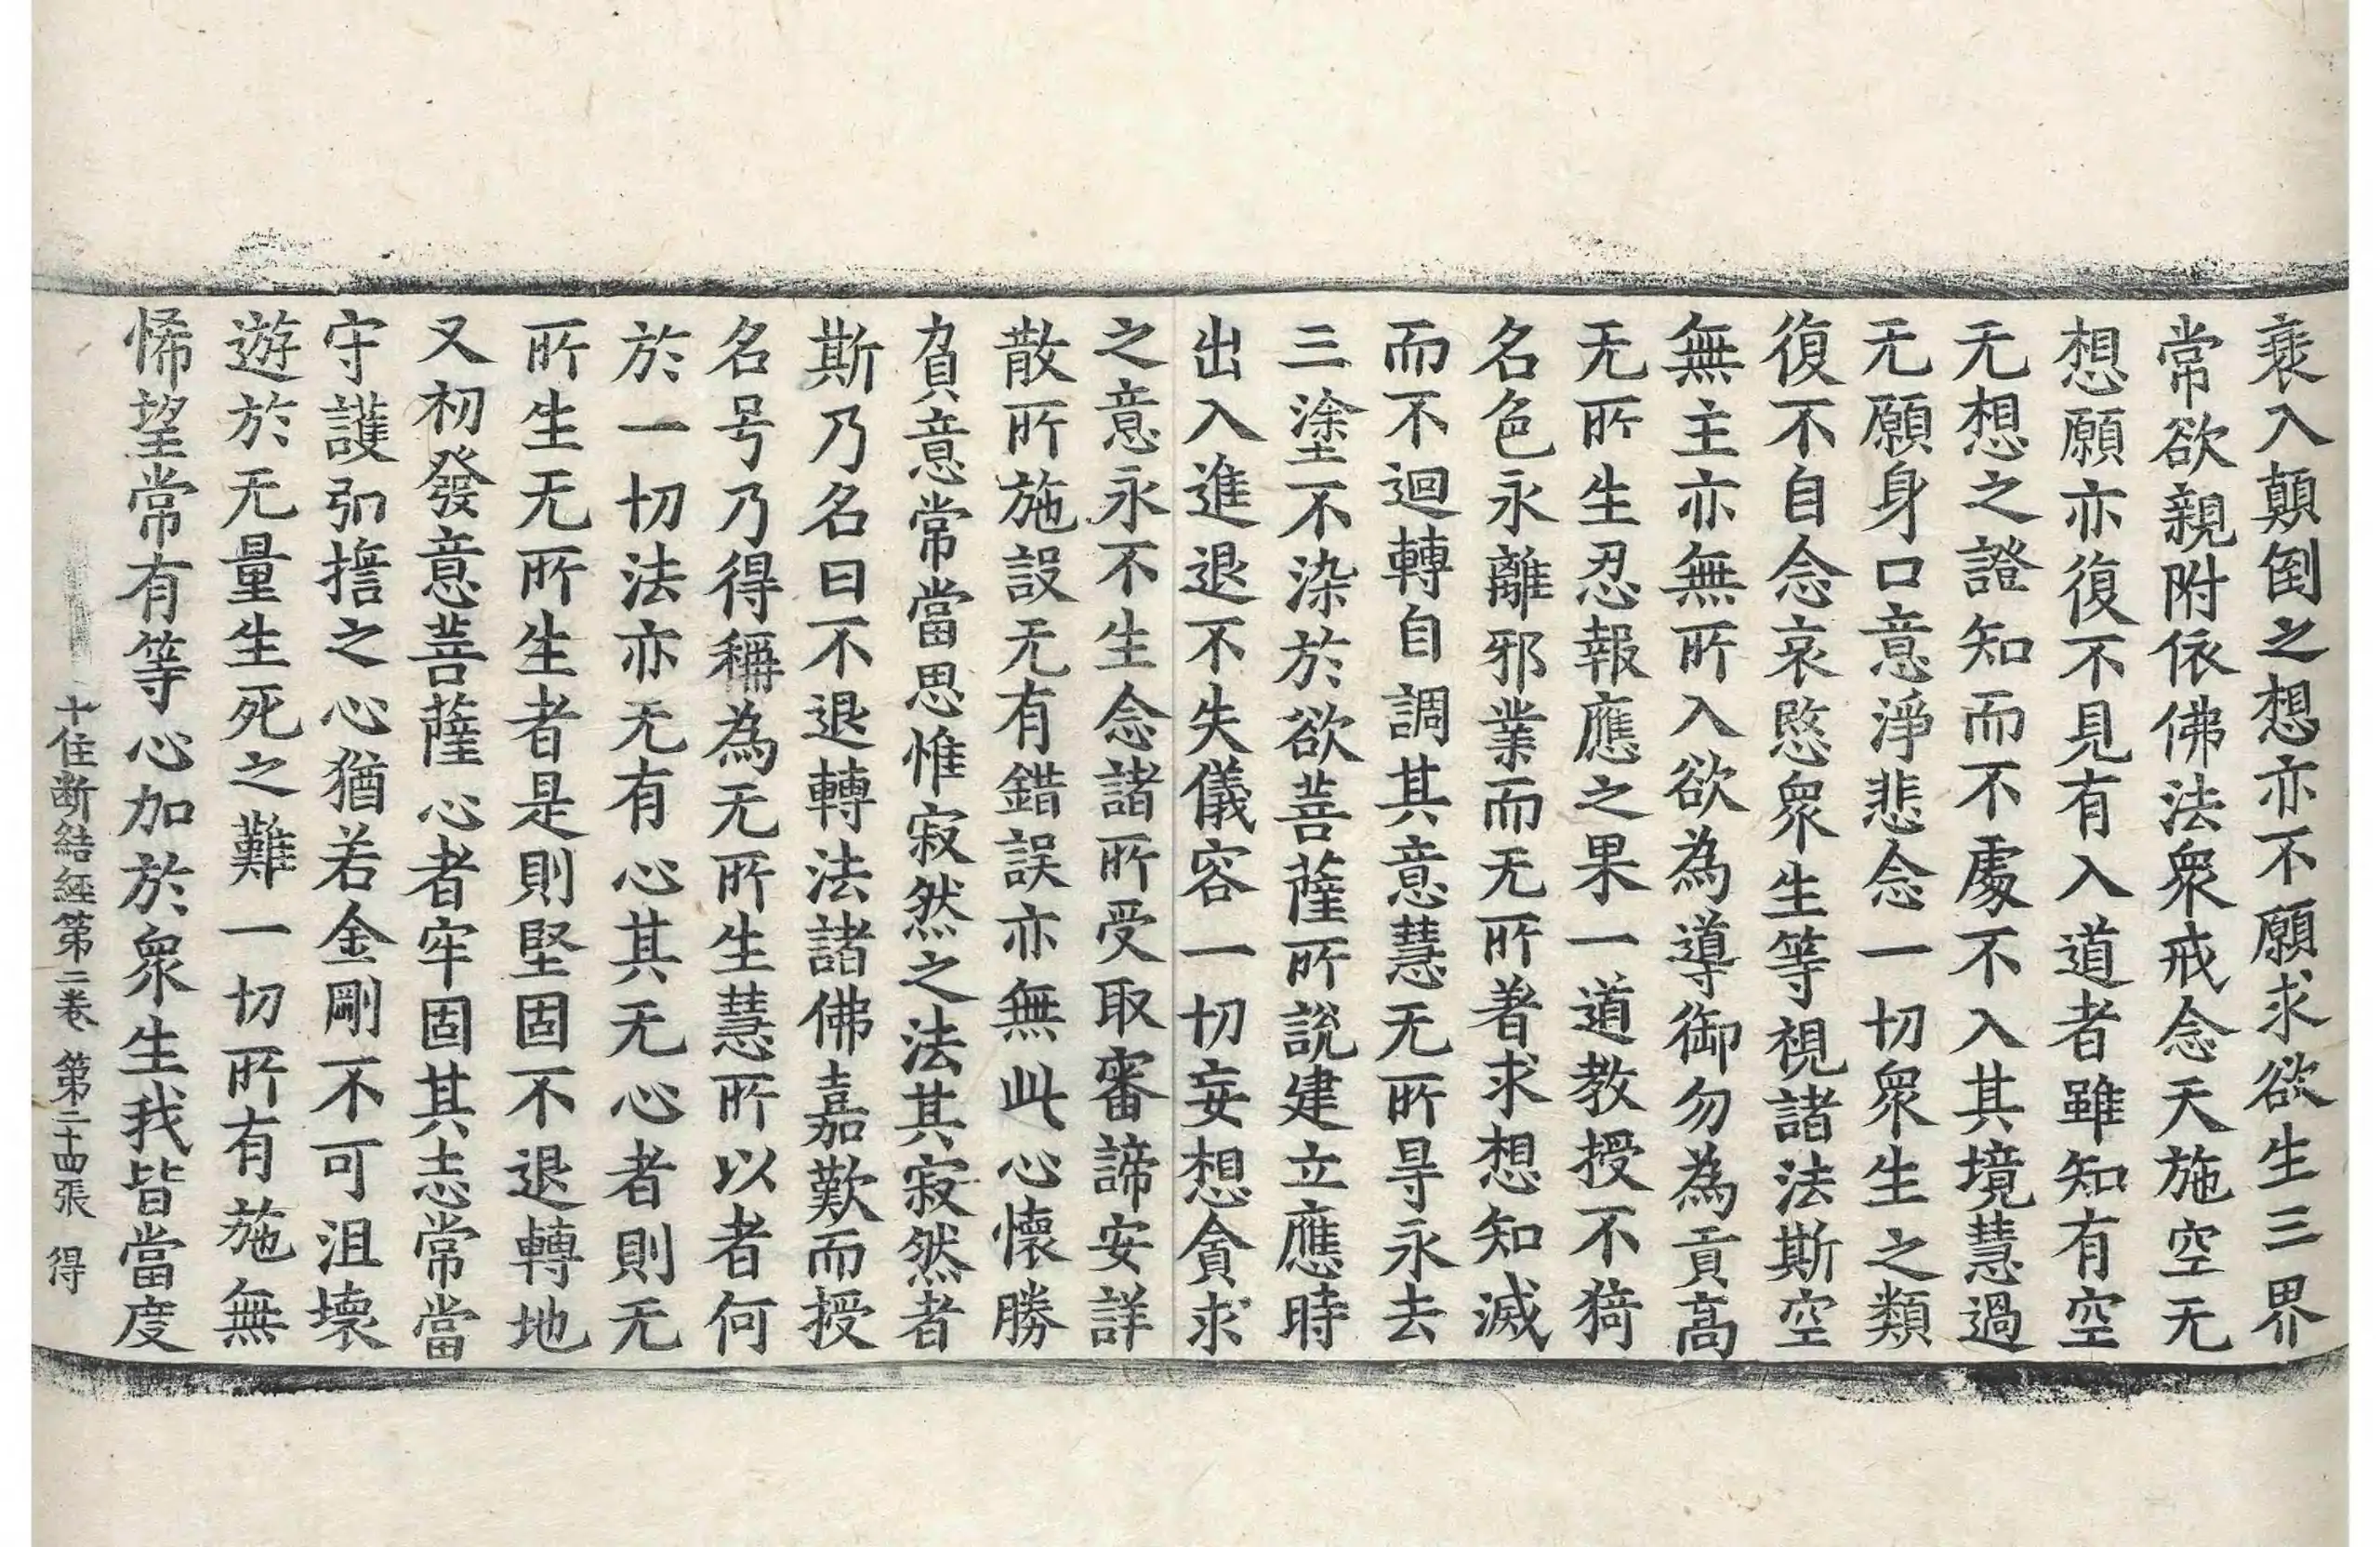 衰入顛倒之想亦不願求欲生三界
常欲親附依佛法衆戒念天施空无
想願亦復不見有入道者雖知有空
无想之證知而不處不入其境慧過
无願身口意淨悲念一切衆生之類
復不自念哀愍衆生等視諸法斯空
無主亦無所入欲為導御勿為貢高
无所生忍報應之果一道教授不猗
名色永離邪業而无所著求想知滅
而不迴轉自調其意慧无所㝵永去
三塗不染於欲菩薩所說建立應時
出入進退不失儀容一切妄想貪求
之意永不生念諸所受取審諦安詳
散所施設无有錯誤亦無此心懷勝
負意常當思惟寂然之法其寂然者
斯乃名曰不退轉法諸佛嘉歎而授
名号乃得稱為无所生慧所以者何
於一切法亦无有心其无心者則无
所生无所生者是則堅固不退轉地
又初發意菩薩心者牢固其志常當
守護弘擔之心猶若金剛不可沮壞
遊於无量生死之難一切所有施無
悕望常有等心加於衆生我皆當度
十住断結經第二卷 第二十四張 得